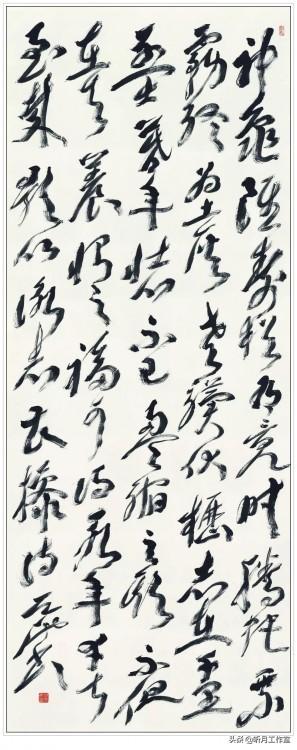 神龜雖壽猶有竟時騰蛇乘
霧終為土灰老驥伏櫪志在千里
烈士暮年壯心不已盈縮之期不但
在天養怡之福可得永年幸甚
至哉歌以詠志曹操詩
头条@昕月工作室